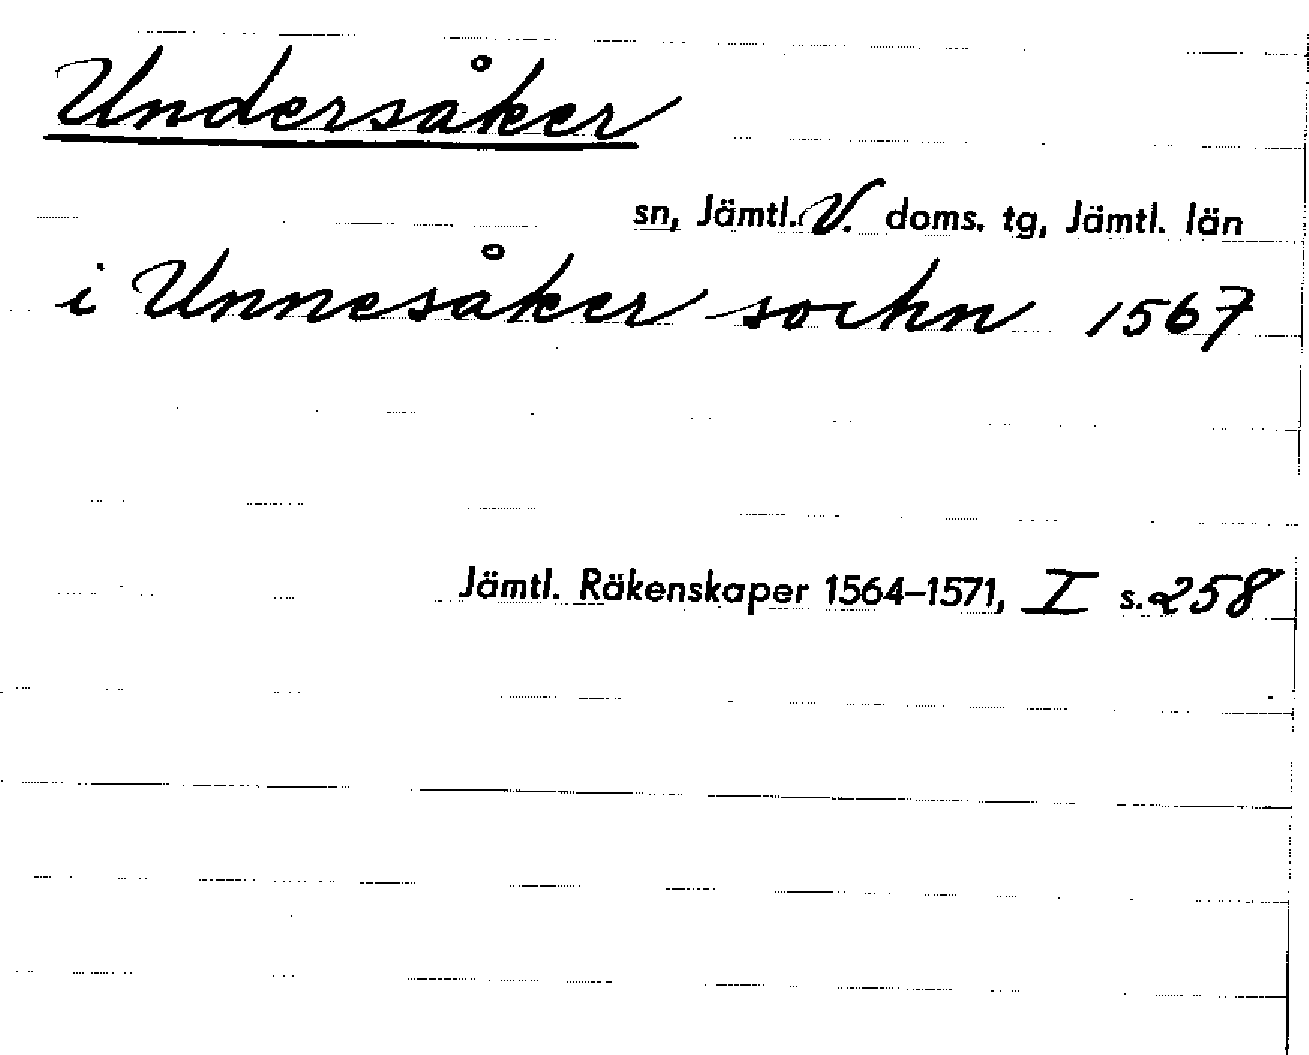 Undersåker
sn, Jämtl. V. doms. tg, Jämtl. län
i Unnesåker sochn 1567
Jämtl. Räkenskaper 1564–1571, I s. 258